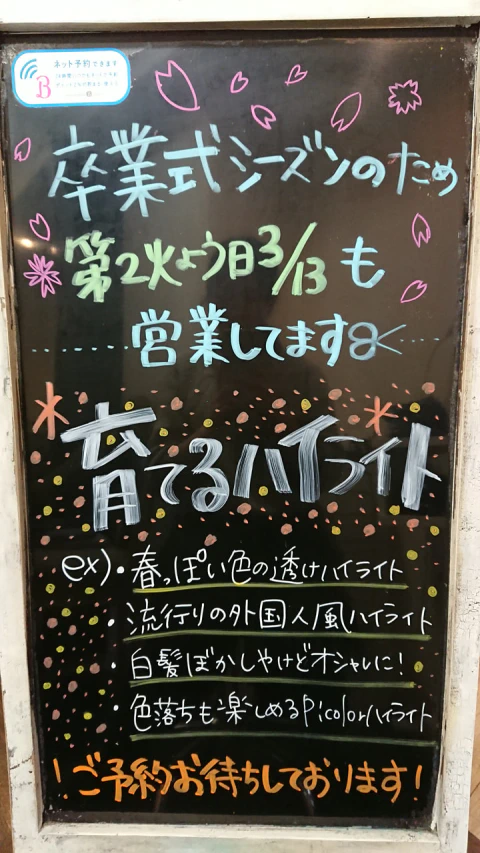 ネット予約できます
B
卒業式シーズンのため
第2火よう日3/13も
営業してます
育てるハイライト
ex)・春っぽい色の透けハイライト
・流行りの外国人風ハイライト
・白髪ぼかしやけどオシャレに!
・色落ちも楽しめるPicolorハイライト
!ご予約お待ちしております!